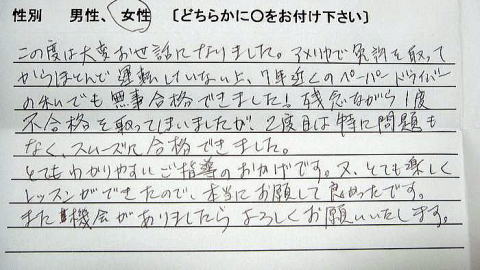 性別　男性、女性　〔どちらかに〇をお付け下さい〕
この度は大変お世話になりました。アメリカで免許を取って
からほとんど運転していない上、7年近くのペーパードライバー
の私でも無事合格できました!残念ながら1度
不合格を取ってしまいましたが、2度目は特に問題も
なく、スムーズに合格できました。
とてもわかりやすいご指導のおかげです。又、とても楽しく
レッスンができたので、本当にお願して良かったです。
また機会がありましたらよろしくお願いいたします。